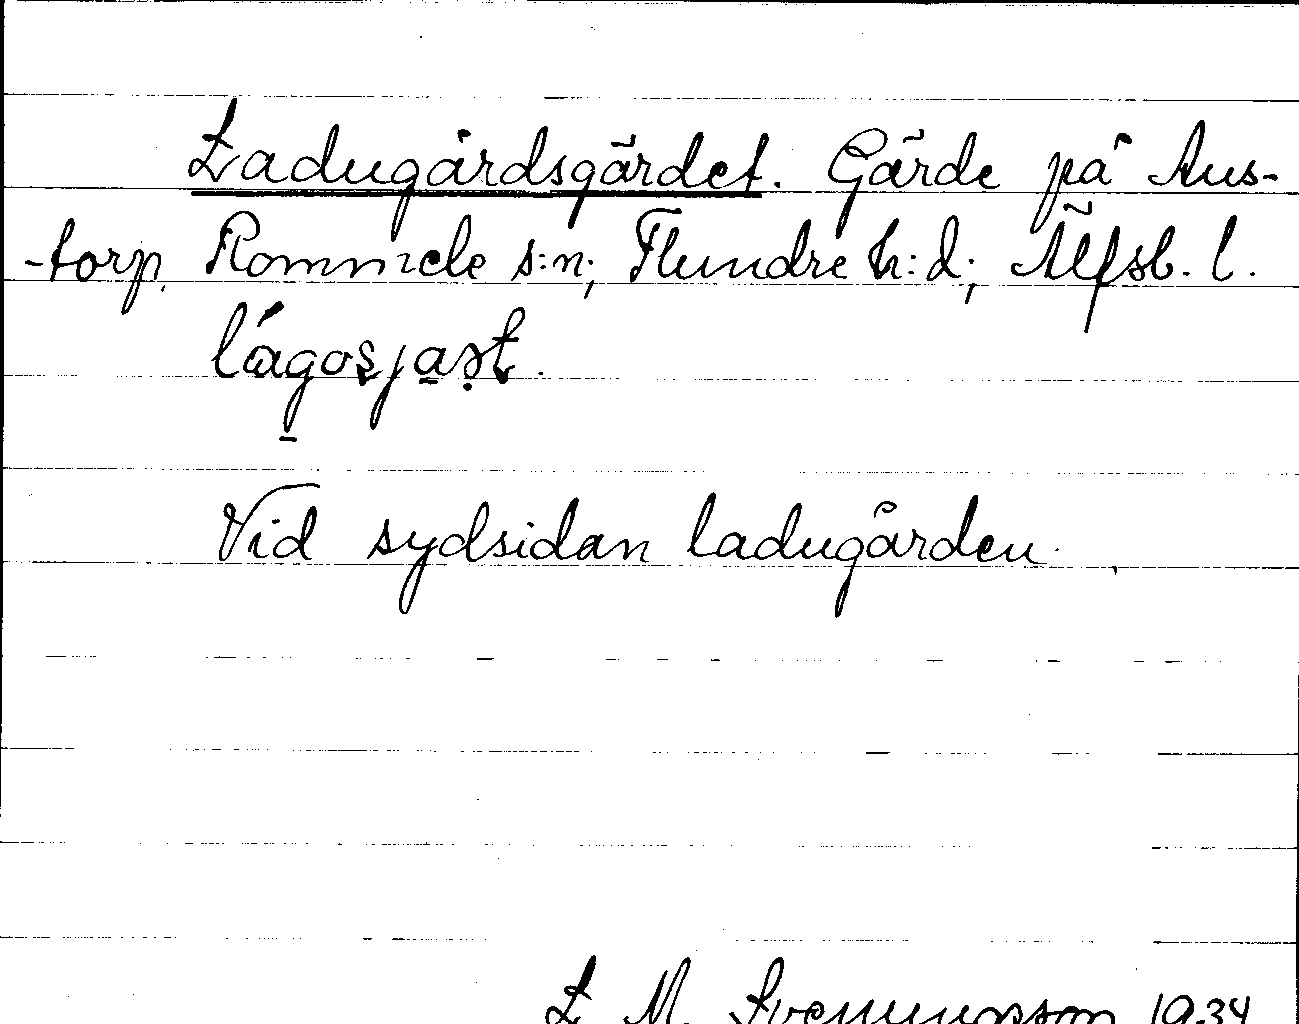 Ladugårdsgärdet. Gärde på Aus-
-torp, Rommele s:n; Flundre h:d; Älfsb. l.
lágosjast.
Vid sydsidan ladugården.
L M. Svenungsson 1934